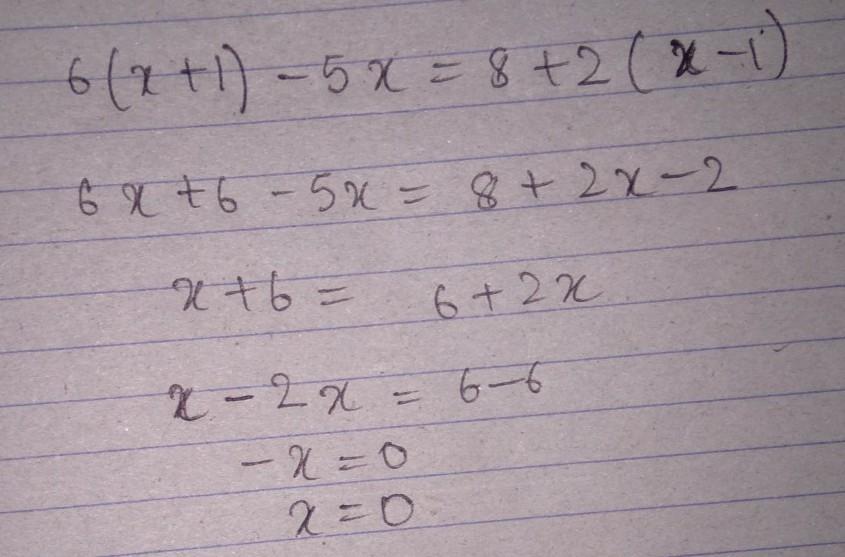 6(x+1)-5x=8+2(x-1)
6x+6-5x=8+2x-2
x+6=6+2x
x-2x=6-6
-x=0
x=0